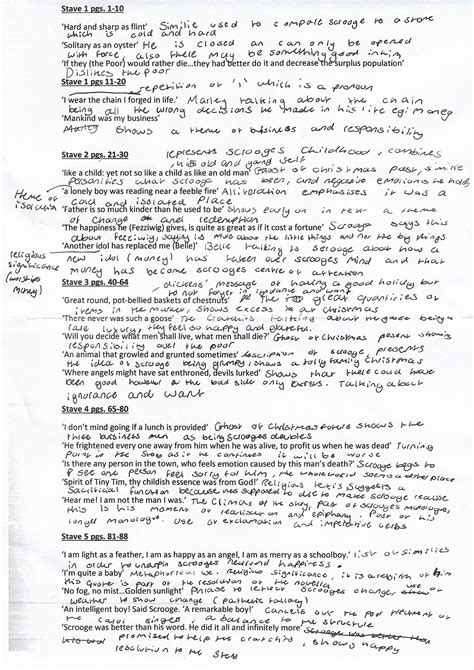 Stave 1 pgs. 1-10
'Hard and sharp as flint' Similie used to compare scrooge to a stone
which is cold and hard
'Solitary as an oyster' He is closed an can only be opened
with force, also there may be something good inside
'If they (the Poor) would rather die…they had better do it and decrease the surplus population'
Dislikes the poor
Stave 1 pgs 11-20
repetition of 'i' which is a pronoun
'I wear the chain I forged in life.' Marley talking about the chain
being all the wrong decisions he made in his life eg: money
'Mankind was my business'
Marley shows a theme of business and responsibility
Stave 2 pgs. 21-30
represents scrooges childhood, combines
his old and yong self
'like a child: yet not so like a child as like an old man' Ghost of christmas past, similie
what scrooge has been, and negative emotions he holds
'a lonely boy was reading near a feeble fire' Alliteration emphasises it was a
cold and isolated place
theme of
isolation
'Father is so much kinder than he used to be' Shows early on in text a theme
of change and redemption
'The happiness he (Fezziwig) gives, is quite as great as if it cost a fortune' Scrooge says this
about Feziwig, saying is more about the little things and not the big things
'Another idol has replaced me (Belle)' Belle talking to scrooge about how a
new idol (money) has taken over scrooges mind and that
money has become scrooges centre of attention
(religious
significance
(worships
money)
Stave 3 pgs. 40-64
dickens' message of having a good holiday but
to not forget in ignorance and want
'Great round, pot-bellied baskets of chestnuts' The great quantities of
items in the market, shows excess at christmas
'There never was such a goose' The talking about the goose being a
luxury, they feel so happy and grateful.
'Will you decide what men shall live, what men shall die?' Ghost of Christmas present shows
responsibility over the poor
'An animal that growled and grunted sometimes' description of scrooge presents
the idea of scrooge being grumpy, shows a family christmas
'Where angels might have sat enthroned, devils lurked' Shows that there could have
been good however the bad side only Talking about
ignorance and want
Stave 4 pgs. 65-80
'I don't mind going if a lunch is provided' Ghost of Christmas future shows the
three business men as being scrooges doubles
'He frightened every one away from him when he was alive, to profit us when he was dead' Turning
point in the story as if he continues it will be worse
'Is there any person in the town, who feels emotion caused by this man's death?' Scrooge begs to
see one person feel sorry for him, the
'Spirit of Tiny Tim, thy childish essence was from God!' Religious lexis suggests a
sacrificial function because hes supposed to die to make scrooge realise
'Hear me! I am not the man I was.' The climax of the story, Part of scrooges monologue,
this is his moment of realisation and epiphany. Part of his
longer monologue. Use of exclamation and imperative verbs
Stave 5 pgs. 81-88
'I am light as a feather, I am as happy as an angel, I am as merry as a schoolboy.' list of similies
in order to scrooges happiness.
'I'm quite a baby' Metaphorical use. Religious significance, it is a rebirth of him
this quote is part of the resolution of the novella
'No fog, no mist…Golden sunlight' Phrase to reflect scrooges change, use of
weather to show change (pathetic fallacy)
'An intelligent boy! Said Scrooge. A remarkable boy!' Cancels out the poor treatment of
the carol singer, a balance to the structure
'Scrooge was better than his word. He did it all and infinitely more' Scrooge was better than
his word promised to help the cratchits, shows happy
resolution to the story